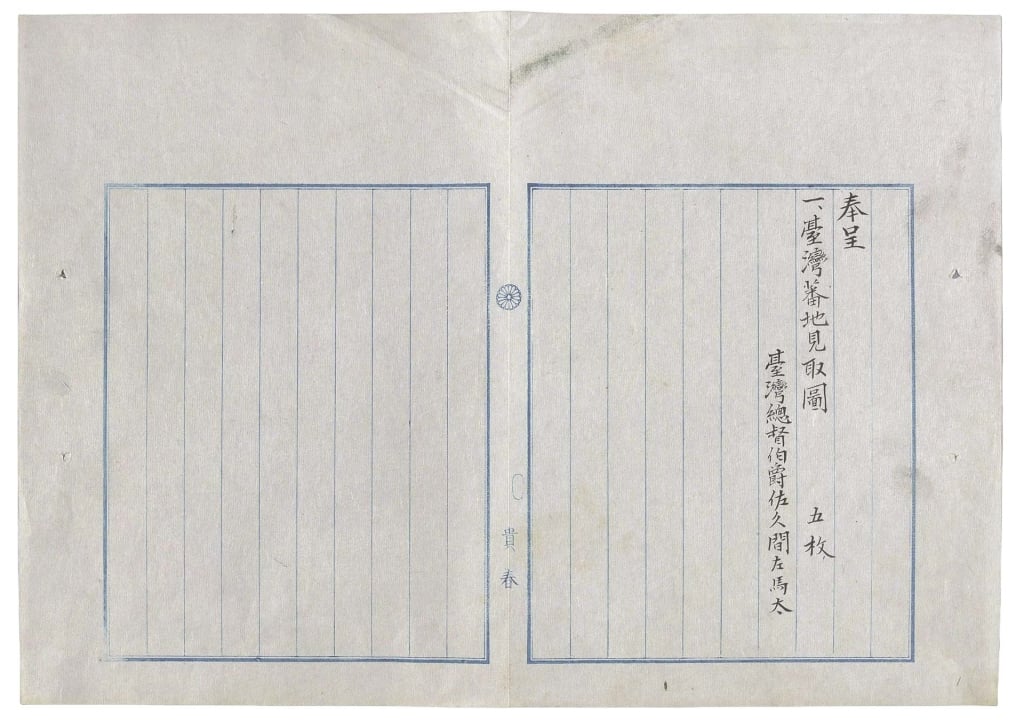 奉呈
一、臺灣蕃地見取圖 五枚
臺灣總督伯爵佐久間左馬太
貴春